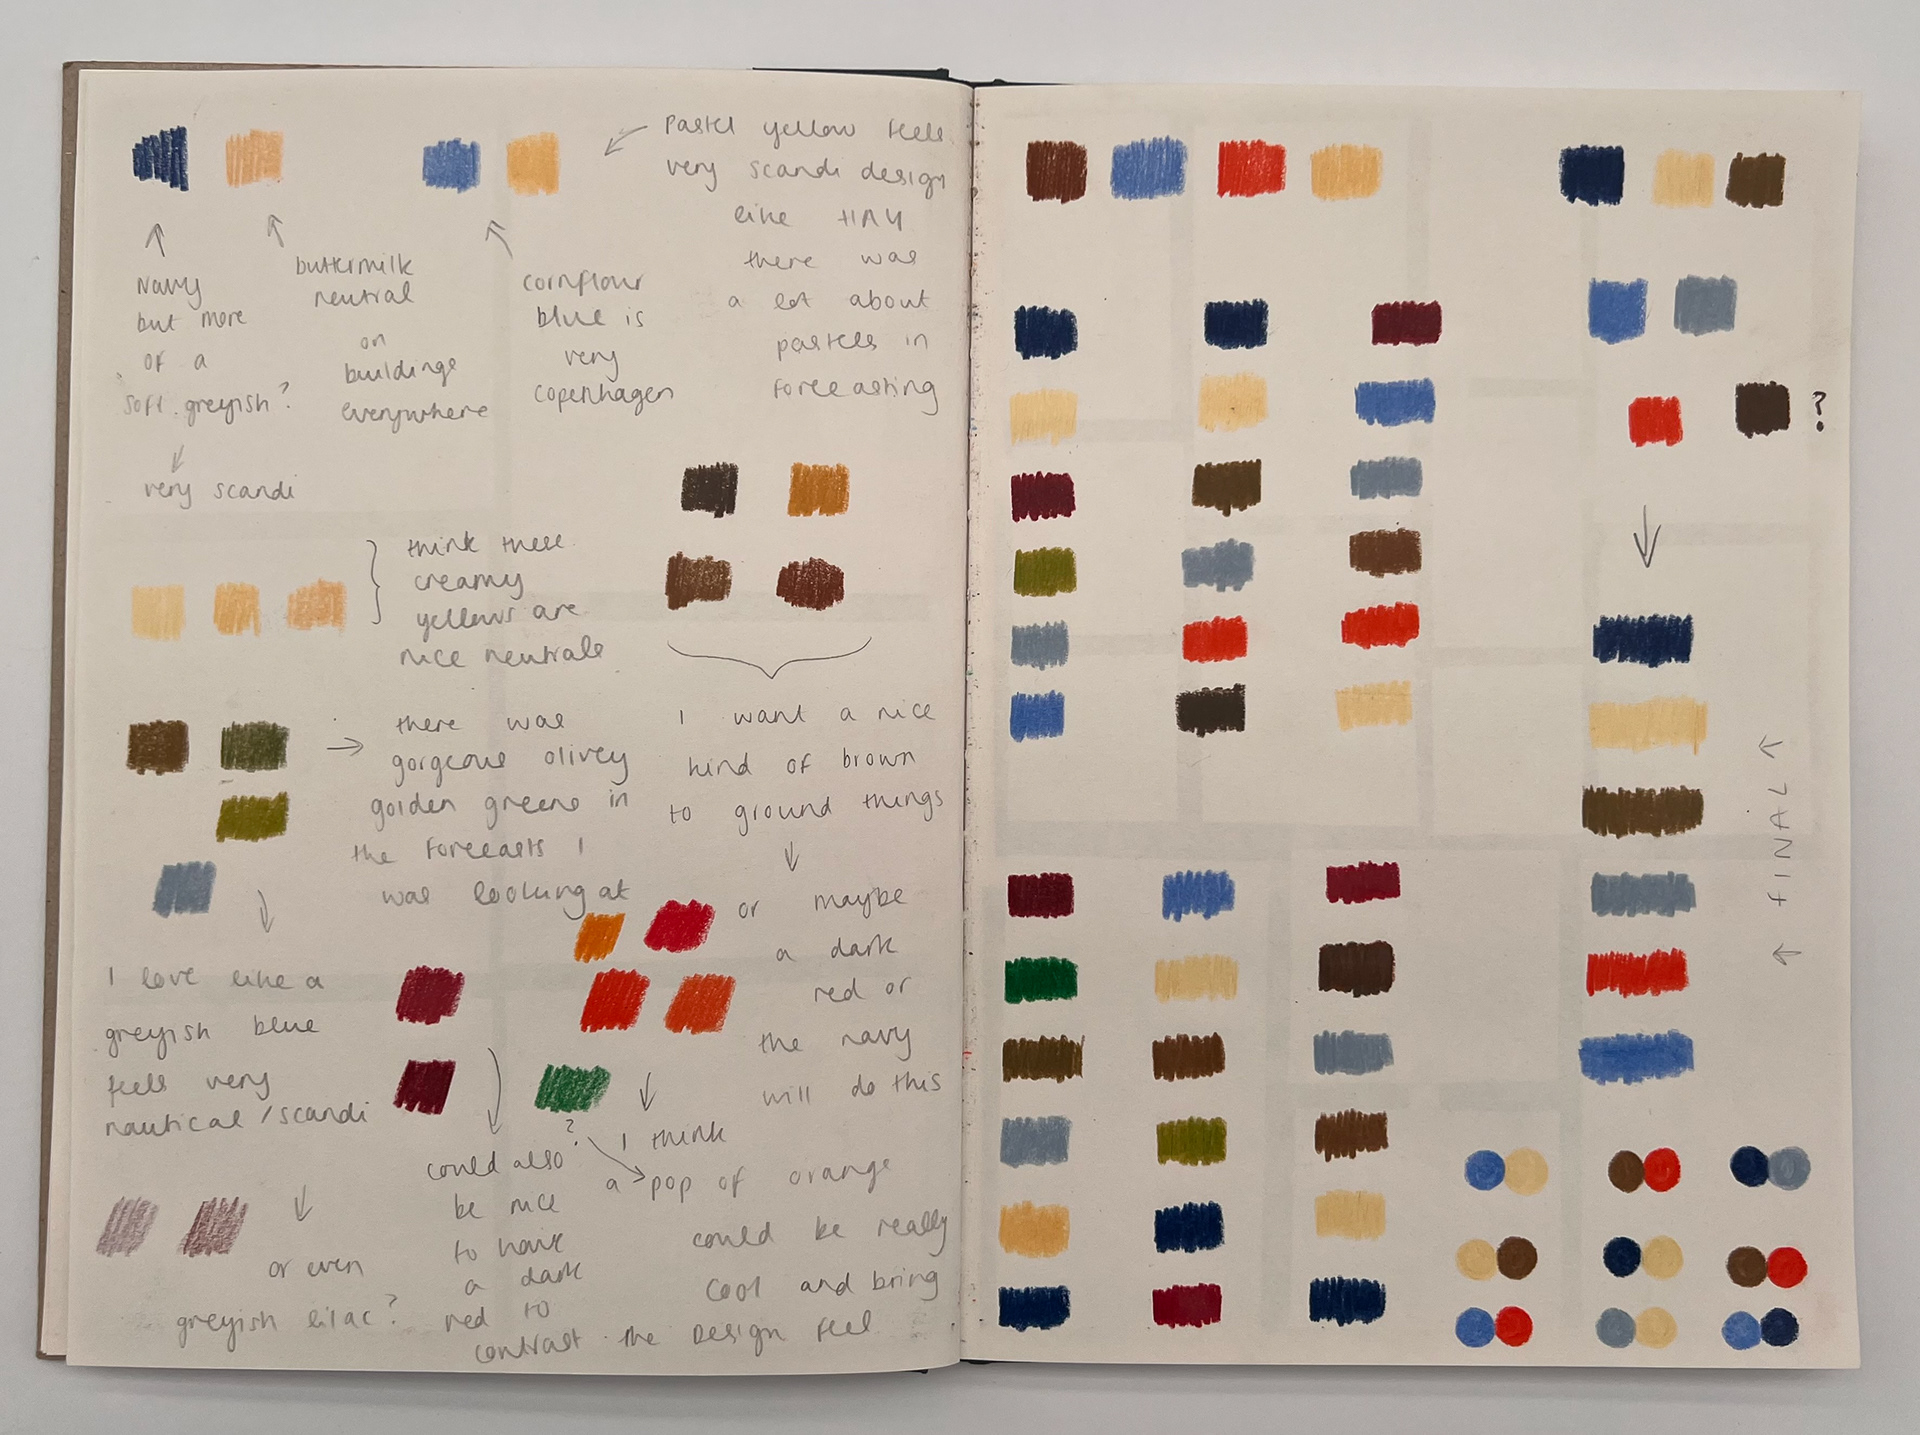 Navy
but more
of a
soft greyish?
very scandi
buttermilk
neutral
on
buildings
everywhere
cornflour
blue is
very
copenhagen
Pastel yellow feels
very scandi design
like HAY
there was
a lot about
pastels in
forecasting
think these
creamy
yellows are
nice neutrals
there was
gorgeous olivey
golden greens in
the forecasts I
was looking at
I want a nice
kind of brown
to ground things
or maybe
a dark
red or
the navy
will do this
I love like a
greyish blue
feels very
nautical/scandi
or even
greyish lilac?
could also
be nice
to have
a dark
red to
contrast
?
I think
a pop of orange
could be really
cool and bring
the Design feel
?
FINAL